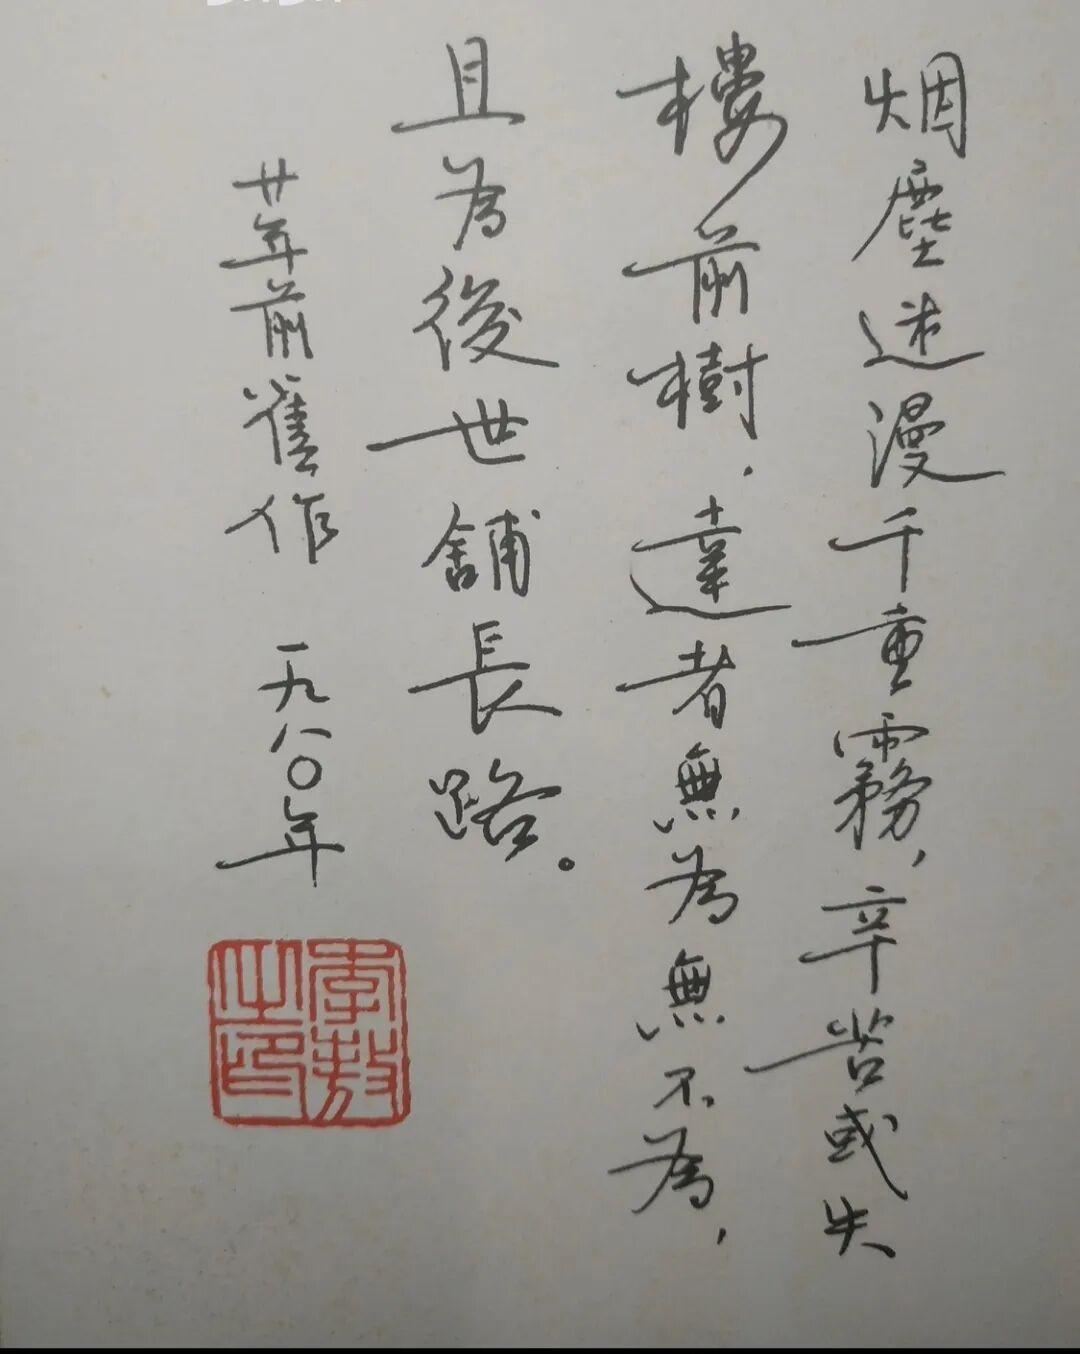 烟塵迷漫千重霧，辛苦或失
樓前樹，達者無為無不為，
且為後世舖長路。
廿年前舊作 一九八〇年
李敖之印